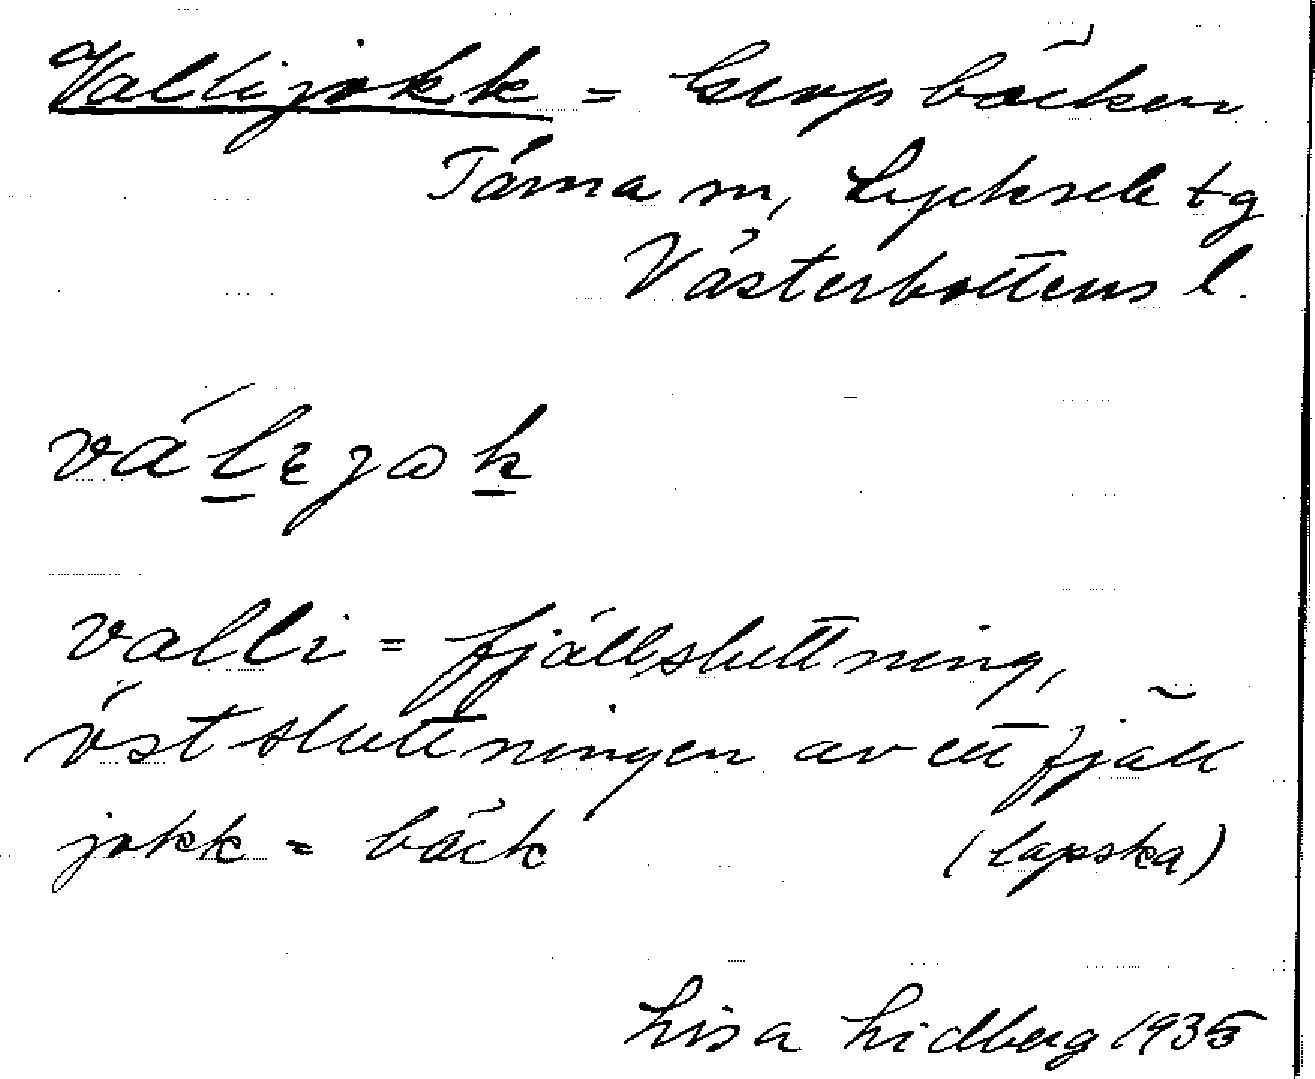 Vallijokk = Gropbäcken
Tärna sn, Lycksele tg
Västerbottens l.
válɛjok
valli = fjällsluttning,
östsluttningen av ett fjäll
jokk = bäck (lapska)
Lisa Lidberg 1935